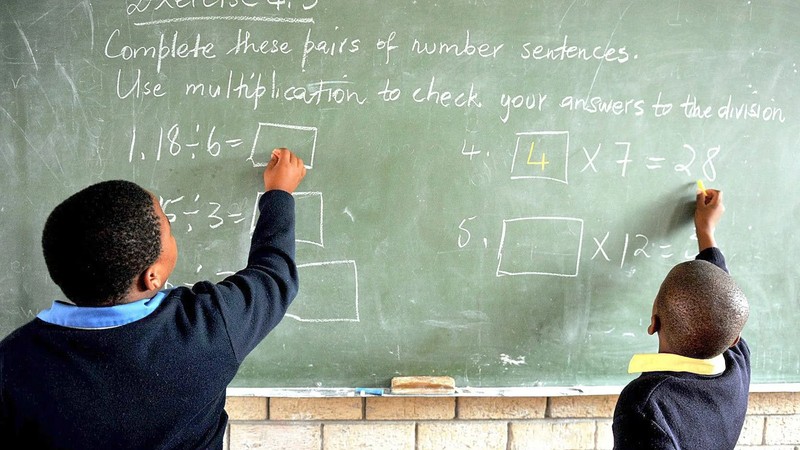 Exercise 4.5
Complete these pairs of number sentences.
Use multiplication to check your answers to the division
1. 18 ÷ 6 =
4. 4 × 7 = 28
5 ÷ 3 =
5. × 12 =